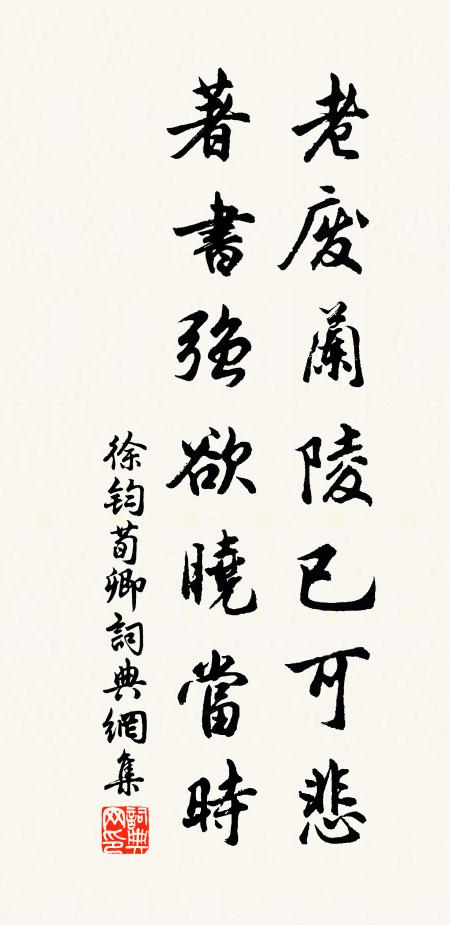 老廢蘭陵已可悲
著書強欲曉當時
徐鈞荀卿詞典網集
詞典網印